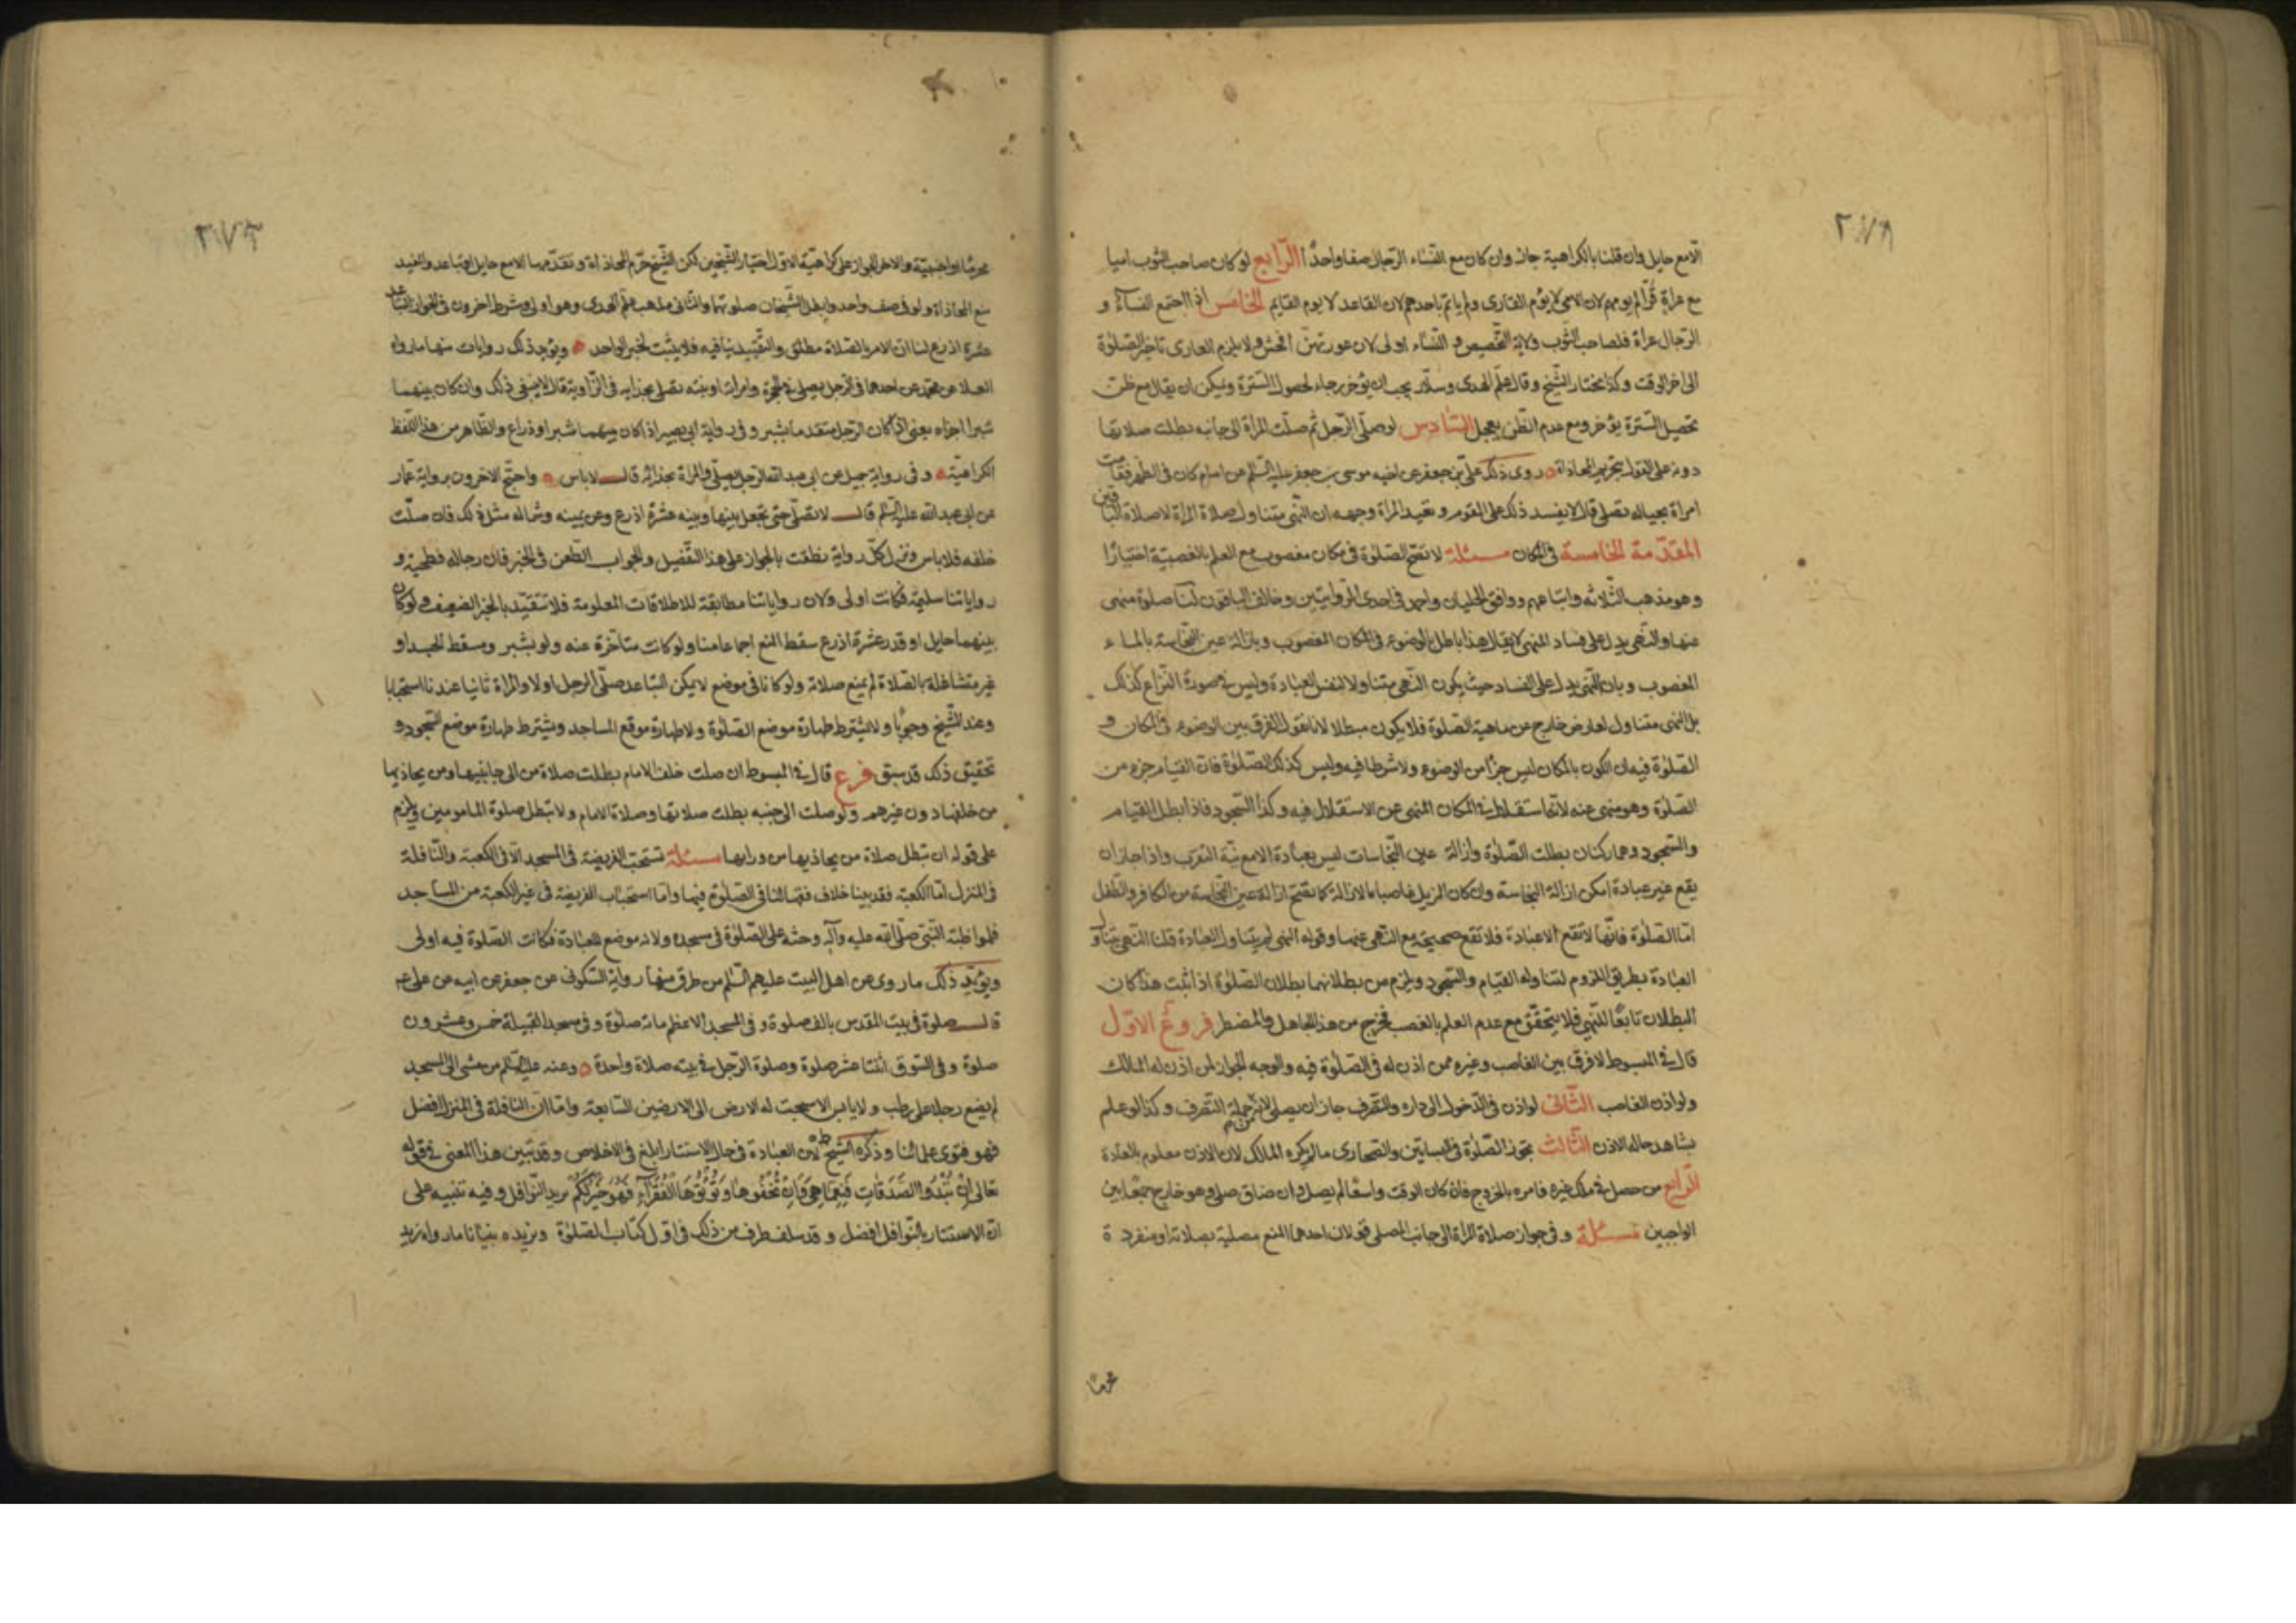 ٢٧٨
الا مع حايل وان قلنا بالكراهية جاز وان كان مع النساء الرجال صفا واحدًا الرابع لو كان صاحب الثوب اميا
مع عراة قرّا لم يومهم لان الامي لا يؤم القارى ولم ياتم باحدهم لان القاعد لا يوم القايم الخامس اذا اجتمع النساء و
الرجال عراة فلصاحب الثوب ولاية التخصيص و النساء اولى لان عورتهن افحش ولا يلزم العارى تاخير الصلوة
الى اخر الوقت وكذا يختار الشيخ وقال علم الهدى وسلار يجب ان يؤخر رجاء لحصول السترة ويمكن ان يقال مع ظن
تحصيل السترة يؤخر ومع عدم الظن يعجل السادس لو صلى الرجل ثم صلت المراة الى جانبه بطلت صلاتها
دونه على القول بتحريم المحاذاة روى ذلك على بن جعفر عن اخيه موسى بن جعفر عليه السلم عن امام كان في الظهر فقامت
امراة بحياله تصلى قال لا يفسد ذلك على القوم وتعيد المراة وجهه ان النهى متناول صلاة المراة لا صلاة الباقين
المقدمة الخامسة في المكان مسئلة لا تصح الصلوة في مكان مغصوب مع العلم بالغصبية اختيارًا
وهو مذهب الثلاثة واتباعهم ووافق الجبائيان واحمد في احدى الروايتين وخالف الباقون لنا صلوة منهى
عنها والنهى يدل على فساد المنهى لا يقال هذا باطل بالوضوء في المكان المغصوب وبازالة عين النجاسة بالماء
المغصوب وبان النهى يدل على الفساد حيث يكون النهى متناولا لنفس العبادة وليس في صورة النزاع كذلك
بل النهى متناول لعارض خارج عن ماهية الصلوة فلا يكون مبطلا لانا نقول الفرق بين الوضوء في المكان و
الصلوة فيه ان الكون بالمكان ليس جزًا من الوضوء ولا شرطا فيه وليس كذلك الصلوة فان القيام جزء من
الصلوة وهو منهى عنه لانه استقلال في المكان المنهى عن الاستقلال فيه وكذا السجود فاذا بطل القيام
والسجود وهما ركنان بطلت الصلوة وازالة عين النجاسات ليس بعبادة الا مع نية التقرب واذا جاز ان
يقع غير عبادة امكن ازالة النجاسة وان كان المزيل غاصبا بالازالة كما تصح ازالة عين النجاسة من الكافر والطفل
امّا الصلوة فانها لا تقع الا عبادة فلا تقع صحيحة مع النهى عنها وقوله النهى لم يتناول العبادة قلنا النهى يتناول
العبادة بطريق اللزوم لتناوله القيام والسجود ويلزم من بطلانهما بطلان الصلوة اذا ثبت هذا كان
البطلان تابعًا للنهي فلا يتحقق مع عدم العلم بالغصب فخرج من هذا الجاهل والمضطر فروع الاول
قال في المبسوط لا فرق بين الغاصب وغيره ممن اذن له في الصلوة فيه والوجه الجواز لمن اذن له المالك
ولو اذن الغاصب الثانى لو اذن في الدخول الى داره والتصرف جاز ان يصلى لانه من جملة التصرف وكذا لو علم
بشاهد حاله الاذن الثالث تجوز الصلوة في البساتين والصحارى ما لم يكره المالك لان الاذن معلوم بالعادة
الرابع من حصل في ملك غيره فامره بالخروج فان كان الوقت واسعًا لم يصل وان ضاق صلى وهو خارج جمعًا بين
الواجبين مسئلة وفي جواز صلاة المراة الى جانب المصلى قولان احدهما المنع مصلية بصلاته او منفردة
محرمًا
٢٧٣
محرمًا او اجنبية والاخر الجواز على كراهية الاول اختيار الشيخين لكن الشيخ حرم المحاذاة وتقدمها الا مع حايل او تباعد والمفيد
منع المحاذاة ولو في صف واحد وابطل الشيخان صلوتهما والثانى مذهب علم الهدى وهو اولى وشرط اخرون في الجواز التباعد
عشرة اذرع لنا ان الامر بالصلاة مطلق والتقييد ينافيه فلا يثبت لخبر الواحد ويؤيد ذلك روايات منها ما رواه
العلا عن محمد عن احدهما في الرجل يصلى في الحجرة وامراته او بنته تصلى بحذايه في الزاوية قال لا ينبغى ذلك وان كان بينهما
شبرا اجزاه يعنى اذا كان الرجل متقدما بشبر وفي رواية ابي بصير اذا كان بينهما شبر او ذراع والظاهر من هذا اللفظ
الكراهية وفي رواية جميل عن ابي عبد الله الرجل يصلى والمراة بحذائه قال لا باس واحتج الاخرون برواية عمار
عن ابي عبد الله عليه السلم قال لا تصلى حتى تجعل بينها وبينه عشرة اذرع وعن يمينه وشماله مثل ذلك فان صلت
خلفه فلا باس وتنزل كل رواية نطقت بالجواز على هذا التفصيل والجواب الطعن في الخبر فان رجاله فطحية و
رواياتنا سليمة فكانت اولى ولان رواياتنا مطابقة للاطلاقات المعلومة فلا تتقيد بالخبر الضعيف ولو كان
بينهما حايل او قدر عشرة اذرع سقط المنع اجماعا منا ولو كانت متأخرة عنه ولو بشبر ومسقط الجسد او
غير متشاغلة بالصلاة لم يمنع صلاته ولو كانا في موضع لا يمكن التباعد صلى الرجل اولا والمراة ثانيا عندنا استحبابا
وعند الشيخ وجوبًا ولا يشترط طهارة موضع الصلوة ولا طهارة موقع المساجد ويشترط طهارة موضع السجود و
تحقيق ذلك قد سبق فرع قال في المبسوط ان صلت خلف الامام بطلت صلاة من الى جانبيها ومن يحاذيها
من خلفها دون غيرهم ولو صلت الى جنبه بطلت صلاتها وصلاة الامام ولا تبطل صلوة المامومين ويلزم
على قوله ان تبطل صلاة من يحاذيها من ورايها مسئلة تستحب الفريضة في المسجد الا في الكعبة والنافلة
في المنزل امّا الكعبة فقد بينا خلاف فقهائنا في الصلوة فيها وامّا استحباب الفريضة في غير الكعبة من المساجد
فلمواظبة النبي صلى الله عليه وآله وحثه على الصلوة في مسجده ولانه موضع للعبادة فكانت الصلوة فيه اولى
ويؤيد ذلك ما روى عن اهل البيت عليهم السلم من طرق منها رواية السكوني عن جعفر عن ابيه عن على ع
قال صلوة في بيت المقدس بالف صلوة وفي المسجد الاعظم مائة صلوة وفي مسجد القبيلة خمس وعشرون
صلوة وفي السوق اثنتا عشر صلوة وصلوة الرجل في بيته صلاة واحدة وعنه عليه السلم من مشى الى المسجد
لم يضع رجلا على رطب ولا يابس الا سبحت له الارض الى الارضين السابعة وامّا ان النافلة في المنزل افضل
فهو فتوى علمائنا وذكره الشيخ ط لان العبادة في حال الاستتار ابلغ في الاخلاص وقد تبين هذا المعنى في قوله
تعالى اِنْ تُبْدُوا الصَّدَقَاتِ فَنِعِمَّا هِىَ وَاِنْ تُخْفُوهَا وَتُؤْتُوهَا الْفُقَرَآءَ فَهُوَ خَيْرٌ لَكُمْ يريد النوافل وفيه تنبيه على
ان الاستتار بالنوافل افضل وقد سلف طرف من ذلك في اول كتاب الصلوة ونزيده بيانا ما رواه زيد